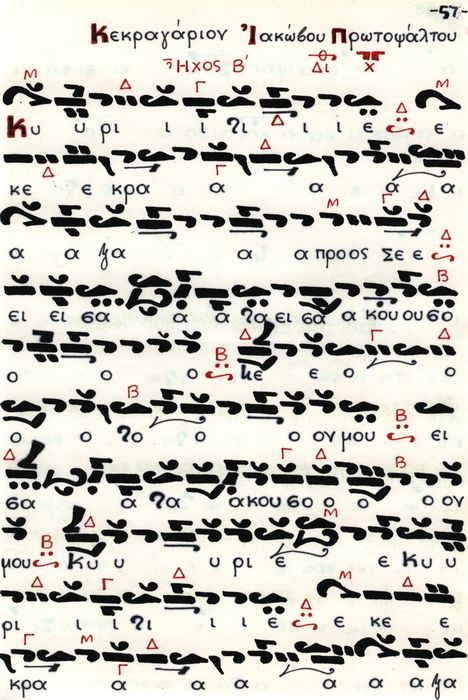 -57-
Κεκραγάριον Ἰακώβου Πρωτοψάλτου
Ἦχος Β΄ Δι χ
Μ Δ Γ Δ Μ
Κυ υ ρι ι ?ι ι ι ε Δ ε
Δ Γ Δ Γ
κε ε κρα α α α α
Μ Γ Δ
α α γα α α προος Σε ε Δ
Β
ει ει σα α α ?α ει σα α κου ου σο
Δ Γ Δ
ο ο ο Β κε ε ο ο
Β
ο ο ?ο ο ο ον μου Β ει
Δ Γ Δ Β
σα α ?α α κου σο ο ο ο ον
Δ Μ
μου Β Κυ υ υ ρι ε ε Κυ υ
Δ Γ Δ Μ Δ
ρι ι ι ?ι ι ε Δ ε κε ε
Γ Μ Δ
κρα α Γ α α α α α γα